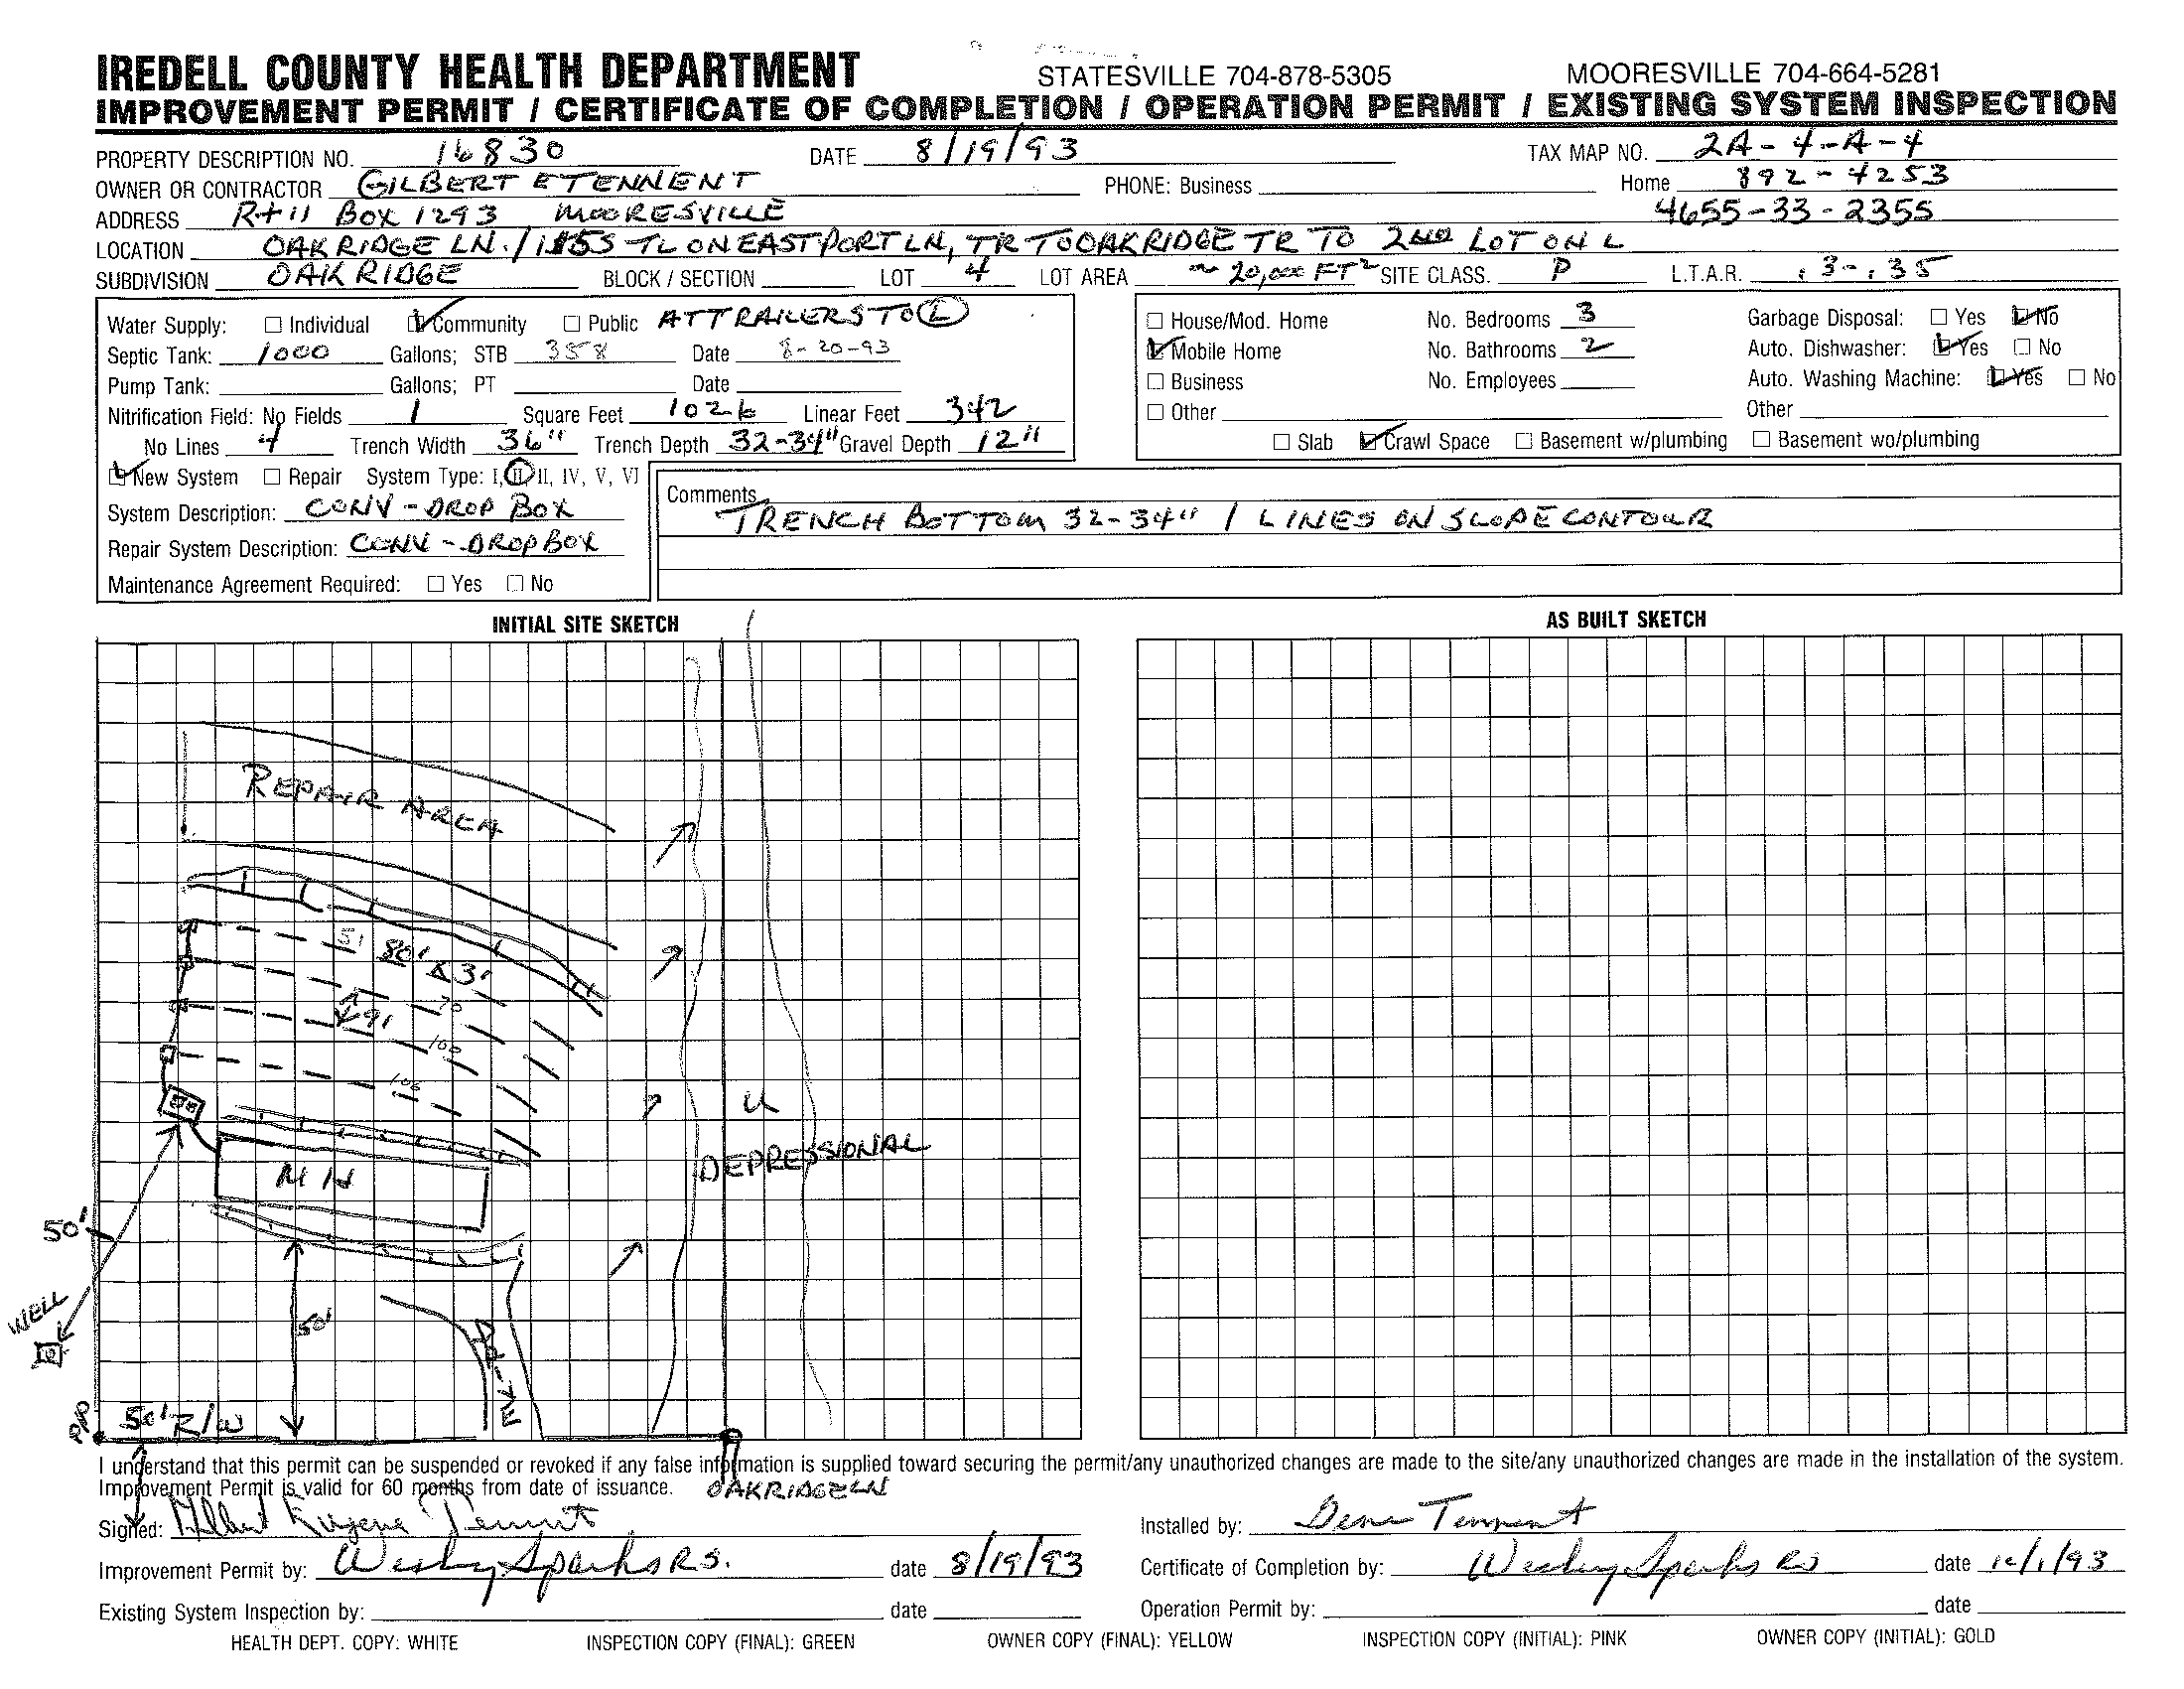 IREDELL COUNTY HEALTH DEPARTMENT STATESVILLE 704-878-5305 MOORESVILLE 704-664-5281
IMPROVEMENT PERMIT / CERTIFICATE OF COMPLETION / OPERATION PERMIT / EXISTING SYSTEM INSPECTION
PROPERTY DESCRIPTION NO. 16830 DATE 8/19/93 TAX MAP NO. 2A-4-A-4
OWNER OR CONTRACTOR GILBERT E TENNENT PHONE: Business Home 892-4253
ADDRESS Rt 11 Box 1293 MOORESVILLE 4655-33-2355
LOCATION OAK RIDGE LN. / TL ON EASTPORT LN, TR TO OAKRIDGE TR TO 2ND LOT ON L
SUBDIVISION OAK RIDGE BLOCK / SECTION LOT 4 LOT AREA ~ 20,000 FT² SITE CLASS. P L.T.A.R. .3-.35
Water Supply: ☐ Individual ☑ Community ☐ Public AT TRAILERS TO L
Septic Tank: 1000 Gallons; STB 358 Date 8-20-93
Pump Tank: Gallons; PT Date
Nitrification Field: No Fields 1 Square Feet 1026 Linear Feet 342
No Lines 4 Trench Width 36" Trench Depth 32-34" Gravel Depth 12"
☐ House/Mod. Home No. Bedrooms 3 Garbage Disposal: ☐ Yes ☑ No
☑ Mobile Home No. Bathrooms 2 Auto. Dishwasher: ☑ Yes ☐ No
☐ Business No. Employees Auto. Washing Machine: ☑ Yes ☐ No
☐ Other Other
☐ Slab ☑ Crawl Space ☐ Basement w/plumbing ☐ Basement wo/plumbing
☑ New System ☐ Repair System Type: I, II, III, IV, V, VI
System Description: CONV - DROP BOX
Repair System Description: CONV - DROP BOX
Maintenance Agreement Required: ☐ Yes ☐ No
Comments
TRENCH BOTTOM 32-34" / LINES ON SLOPE CONTOUR
INITIAL SITE SKETCH
AS BUILT SKETCH
REPAIR AREA
51 80' x 3'
70
9'
100
106
U
DEPRESSIONAL
M H
50'
WELL
50'
DR-WY
50' R/W
I understand that this permit can be suspended or revoked if any false information is supplied toward securing the permit/any unauthorized changes are made to the site/any unauthorized changes are made in the installation of the system.
Improvement Permit is valid for 60 months from date of issuance. OAKRIDGE LN
Signed: Gilbert Eugene Tennent Installed by: Gene Tennent
Improvement Permit by: Wesley Sparks R.S. date 8/19/93 Certificate of Completion by: Wesley Sparks RS date 10/1/93
Existing System Inspection by: date Operation Permit by: date
HEALTH DEPT. COPY: WHITE INSPECTION COPY (FINAL): GREEN OWNER COPY (FINAL): YELLOW INSPECTION COPY (INITIAL): PINK OWNER COPY (INITIAL): GOLD